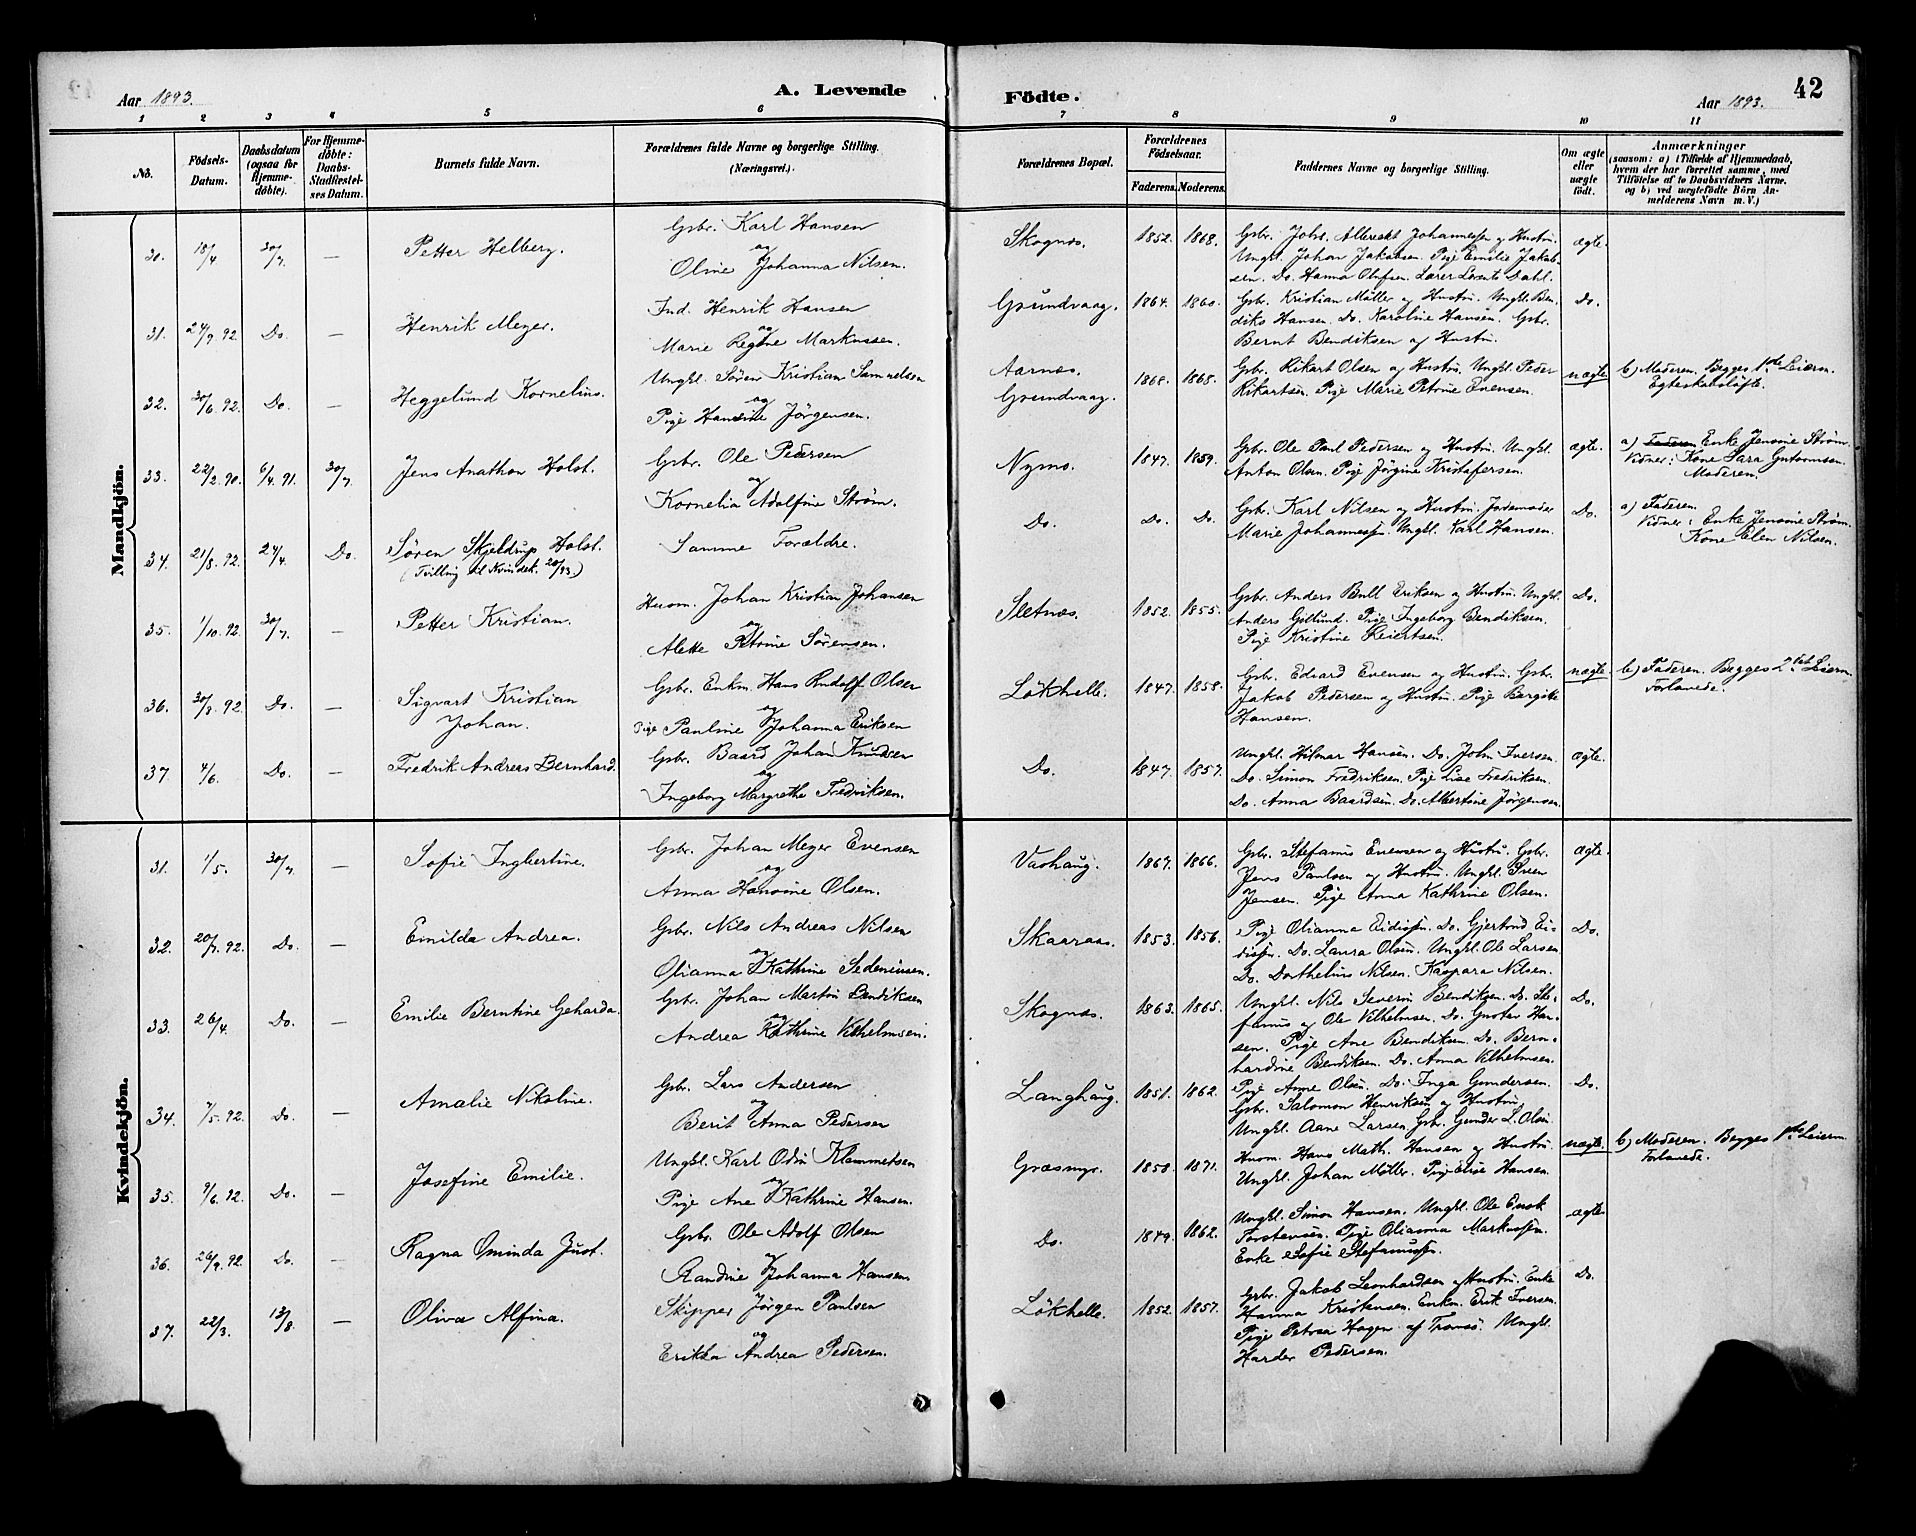 Aar 1893.
A. Levende
Födte.
Aar 1893.
42
1 2 3 4 5 6 7 8 9 10 11
No.
Födsels-Datum.
Daabsdatum (ogsaa for Hjemmedöbte).
For Hjemmedøbte: Daabs-Stadfæstelses Datum.
Barnets fulde Navn.
Forældrenes fulde Navne og borgerlige Stilling. (Næringsvei.)
Forældrenes Bopæl.
Forældrenes Födselsaar.
Faderens. Moderens.
Faddernes Navne og borgerlige Stilling.
Om ægte eller uægte födt.
Anmærkninger
(saasom: a) i Tilfælde af Hjemmedaab, hvem der har forrettet samme, med Tilföielse af to Daabsvidners Navne, og b) ved uægtefödte Börn Anmelderens Navn m. V.)
Mandkjön.
30. 18/4 30/7 — Petter Helberg.
Gbr. Karl Hansen
og
Oline Johanna Nilsen.
Skognæs. 1852. 1868.
Gbr. Johs. Albrekt Johannessen og Hustru.
Ungkl. Johan Jakobsen. Pige Emilie Jakob-
sen. Do. Hanna Olufsen. Lærer Lorents Dahl.
ægte.
31. 24/9 92. Do. — Henrik Meyer.
Ind. Henrik Hansen
og
Marie Regine Markussen.
Grundvaag. 1864. 1860.
Gbr. Kristian Müller og Hustru. Ungkl. Ben-
diks Hansen. Do. Karoline Hansen. Gbr.
Bernt Bendiksen og Hustru.
Do.
32. 30/6 92. Do. — Heggelund Kornelius.
Ungkl. Sören Kristian Samuelsen
og
Pige Hansine Jörgensen.
Aarnæs.
Grundvaag.
1868. 1868.
Gbr. Rikart Olsen og Hustru. Ungkl. Peder
Rikartsen. Pige Marie Petrine Evensen.
uægte.
b) Moderen. Begges 1ste Leierm.
Egteskabslöfte.
33. 22/2 90. 6/4 91. 30/7 Jens Anathon Holst.
Gbr. Ole Pedersen
og
Kornelia Adolfine Ström.
Nymo. 1847. 1859.
Gbr. Ole Paul Pedersen og Hustru. Ungkl.
Anton Olsen. Pige Jörgine Kristofersen.
ægte.
a) Faderen Enke Jensine Ström.
Vidner: Kone Sara Guttormsen.
Moderen.
34. 21/8 92. 24/4 Do. Sören Skjeldrup Holst.
(Tvilling til Kvindek. 20/93.)
Samme Forældre.
Do. Do. Do.
Gbr. Karl Nilsen og Hustru. Jordemoder
Marie Johannessen. Ungkl. Karl Hansen.
Do.
a) Faderen.
Vidner: Enke Jensine Ström.
Kone Elen Nilsen.
35. 1/10 92. 30/7 — Petter Kristian.
Husm. Johan Kristian Johansen
og
Alette Petrine Sörensen.
Sletnæs. 1852. 1855.
Gbr. Anders Bull Eriksen og Hustru. Ungkl.
Anders Giltlund. Pige Ingeborg Bendiksen.
Pige Kristine Leiertsen.
Do.
36. 30/8 92. Do. — Sigvart Kristian
Johan.
Gbr. Enkm. Hans Rudolf Olsen
og
Pige Pauline Johanna Eriksen
Lökhelle. 1847. 1858.
Gbr. Edvard Evensen og Hustru. Gbr.
Jakob Pedersen og Hustru. Pige Bergitte
Hansen.
uægte.
b) Faderen. Begges 2det Leierm.
Forlovede.
37. 4/6. Do. — Fredrik Andreas Bernhard.
Gbr. Baard Johan Knudsen
og
Ingeborg Margrethe Fredriksen.
Do. 1847. 1857.
Ungkl. Hilmar Hansen. Do. John Iversen.
Do. Simon Fredriksen. Pige Lise Fredriksen.
Do. Anna Baardsen. Do. Albertine Jörgensen.
ægte.
Kvindekjön.
31. 1/5. 30/7 — Sofie Ingbertine.
Gbr. Johan Meyer Evensen
og
Anna Hansine Olsen.
Vashaug. 1867. 1866.
Gbr. Stefanus Evensen og Hustru. Gbr.
Jens Paulsen og Hustru. Ungkl. Sven
Jensen. Pige Anna Kathrine Olsen.
ægte.
32. 20/7 92. Do. — Emilda Andrea.
Gbr. Nils Andreas Nilsen
og
Olianna Kathrine Sedeniusen.
Skaaraas. 1853. 1856.
Pige Olianna Eidissen. Do. Gjertrud Ei-
dissen. Do. Laura Olsen. Ungkl. Ole Larsen
Do. Dorthelius Nilsen. Kaspara Nilsen.
Do.
33. 26/4. Do. — Emilie Berntine Geharda.
Gbr. Johan Martin Bendiksen
og
Andrea Kathrine Vilhelmsen.
Skognæs. 1863. 1865.
Ungkl. Nils Severin Bendiksen. Do. Ste-
fanus og Ole Vilhelmsen. Do. Gustav Han-
sen. Pige Ane Bendiksen. Do. Bern-
hardine Bendiksen. Do. Anna Vilhelmsen.
Do.
34. 7/5 92. Do. — Amalie Nikoline.
Gbr. Lars Andersen
og
Berit Anna Pedersen
Langhaug. 1851. 1862.
Pige Anne Olsen. Do. Inga Gundersen.
Gbr. Salomon Henriksen og Hustru.
Ungkl. Aane Larsen. Gbr. Gunder L. Olsen.
Do.
35. 9/6 92. Do. — Josefine Emilie.
Ungkl. Karl Odin Klemmetsen
og
Pige Ane Kathrine Hansen.
Græsmyr. 1858. 1871.
Husm. Hans Math. Hansen og Hustru.
Ungkl. Johan Möller. Pige Elise Hansen.
uægte.
b) Moderen. Begges 1ste Leierm.
Forlovede.
36. 26/9 92. Do. — Ragna Ominda Just.
Gbr. Ole Adolf Olsen
og
Randine Johanna Hansen
Do. 1849. 1862.
Ungkl. Simon Hansen. Ungkl. Ole Enok
Torstensen. Pige Olianna Markussen.
Enke Sofie Stefanussen.
ægte.
37. 22/3. 13/8. — Oliva Alfina.
Skipper Jörgen Paulsen
og
Erikka Andrea Pedersen.
Lökhelle. 1852. 1857.
Gbr. Jakob Leonhardsen og Hustru. Enke
Hanna Kristensen. Enkm. Erik Iversen.
Pige Petrea Hagen af Tromsö. Ungkl.
Harder Pedersen.
Do.